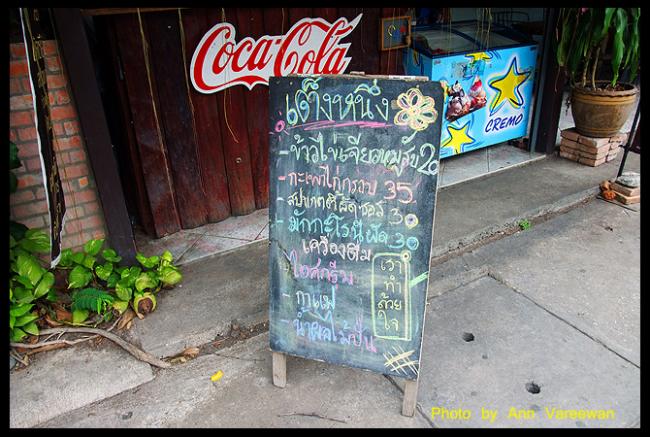 Coca-Cola
CREMO
เต็งหนึ่ง
- ข้าวไข่เจียวหมูสับ 20
- กะเพราไก่กรอบ 35
- สปาเกตตี้ผัดซอส 30
- มักกะโรนีผัด 30
เครื่องดื่ม
ไอศกรีม
- กาแฟ
- น้ำผลไม้ปั่น
เรา
ทำ
ด้วย
ใจ
Photo by Ann Vareewan